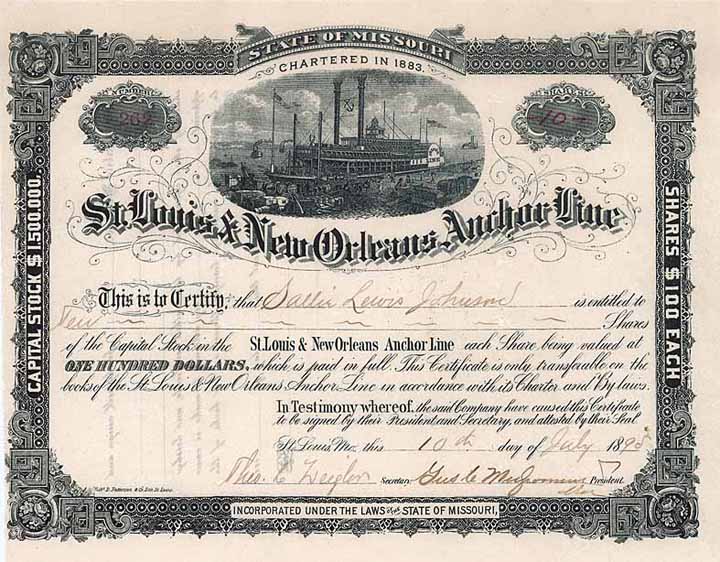 STATE OF MISSOURI
CHARTERED IN 1883.
NUMBER
SHARES
202
-10-
St. Louis & New Orleans Anchor Line
CAPITAL STOCK $1,500,000.
SHARES $100 EACH
This is to Certify, that Sallie Lewis Johnson is entitled to
Ten Shares
of the Capital Stock in the St. Louis & New Orleans Anchor Line each Share being valued at
ONE HUNDRED DOLLARS, which is paid in full. This Certificate is only transferable on the
books of the St. Louis & New Orleans Anchor Line in accordance with its Charter and By laws.
In Testimony whereof, the said Company have caused this Certificate
to be signed by their President and Secretary, and attested by their Seal
St. Louis, Mo. this 10th day of July 1895
Theo. C. Zeigler Secretary. Gus C. President.
INCORPORATED UNDER THE LAWS OF THE STATE OF MISSOURI,